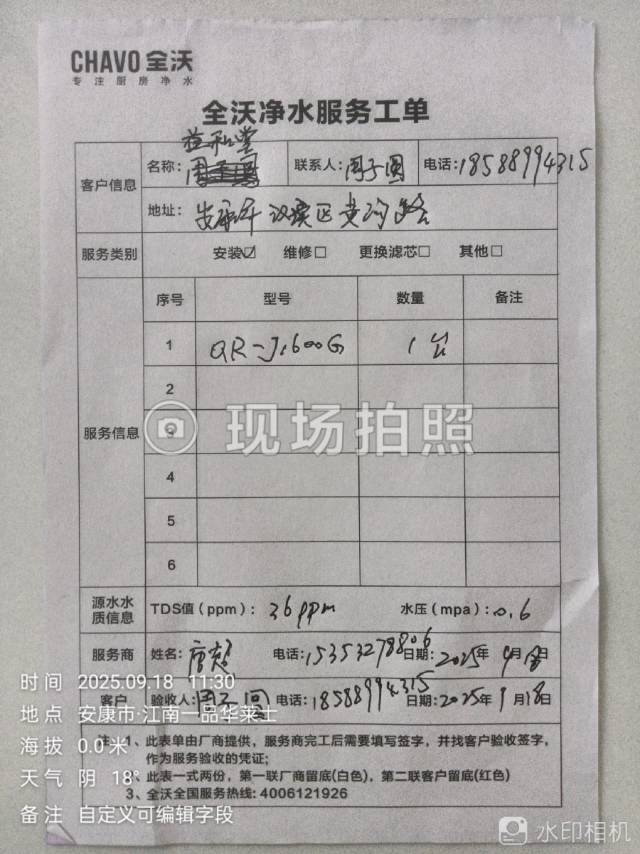 CHAVO 全沃
专注厨房净水
全沃净水服务工单
益和堂
客户信息 名称： 联系人：周子圆 电话：18588994315
地址：安康市汉滨区黄沟路
服务类别 安装☑ 维修□ 更换滤芯□ 其他□
序号 型号 数量 备注
1 QR-J1600G 1台
2
服务信息 3
现场拍照
4
5
6
源水水质信息 TDS值（ppm）：36ppm 水压（mpa）：0.6
服务商 姓名：唐超 电话：15353278806 日期：2025年9月18日
客户 验收人：周子圆 电话：18588994315 日期：2025年9月18日
注：1、此表单由厂商提供，服务商完工后需要填写签字，并找客户验收签字，
作为服务验收的凭证；
2、此表一式两份，第一联厂商留底(白色)，第二联客户留底(红色)
3、全沃全国服务热线：4006121926
时间 2025.09.18 11:30
地点 安康市·江南一品华莱士
海拔 0.0米
天气 阴 18°
备注 自定义可编辑字段
水印相机